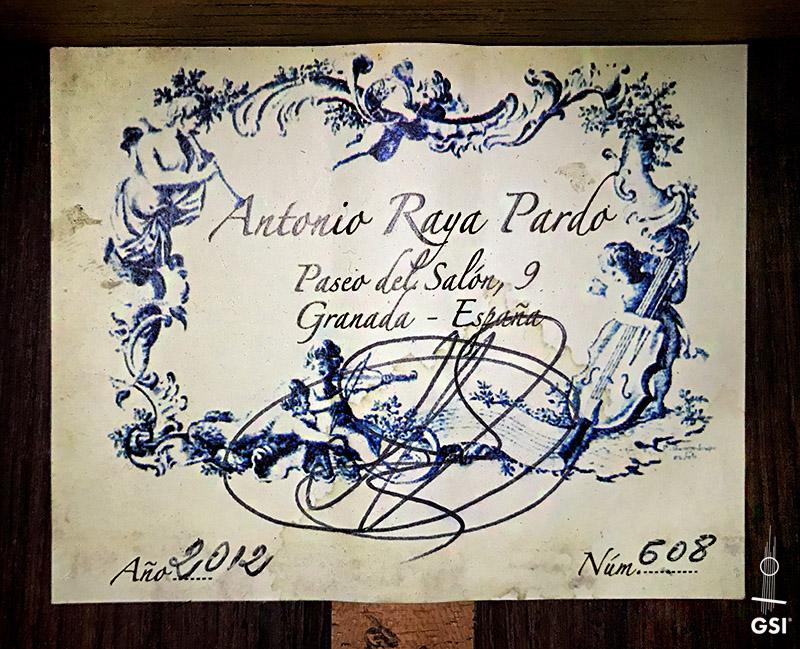 Antonio Raya Pardo
Paseo del Salón, 9
Granada - España
Año 2012
Núm. 608
GSI